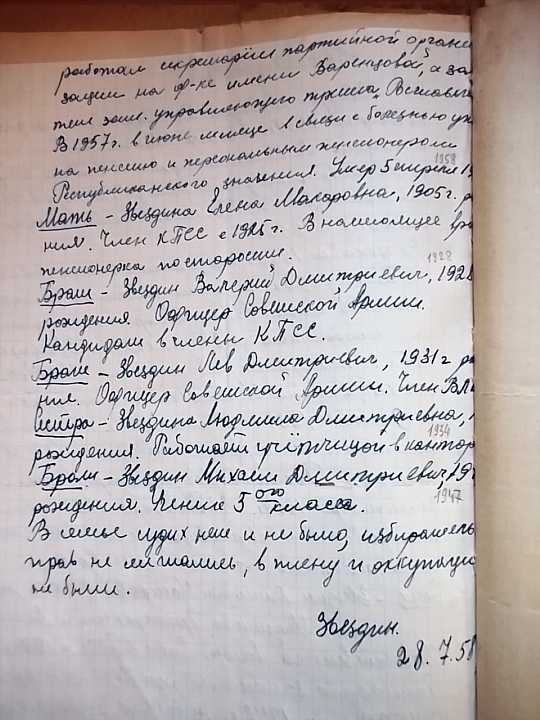 работал секретарём партийной органи
зации на ф-ке имени Варенцовой, а за
тем зам. управляющего треста
В 1957 г. в июне месяце в связи с болезнью
на пенсию и персональным пенсионером
Республиканского значения. Умер 5 апреля 19
1958
Мать - Звездина Елена Макаровна, 1905 г. р
ния. Член КПСС с 1925 г. В настоящее вре
пенсионерка по старости.
1928
Брат - Звездин Валерий Дмитриевич, 1928
рождения. Офицер Советской Армии.
Кандидат в члены КПСС.
Брат - Звездин Лев Дмитриевич, 1931 г р
ние. Офицер Советской Армии. Член ВЛ
Сестра - Звездина Людмила Дмитриевна, 1
1934
рождения. Работает учётчицой в контор
Брат - Звездин Михаил Дмитриевич, 19
1947
рождения. Ученик 5ого класса.
В семье судих нет и не было, избиратель
прав не лишались, в плену и оккупации
не были.
Звездин.
28.7.58